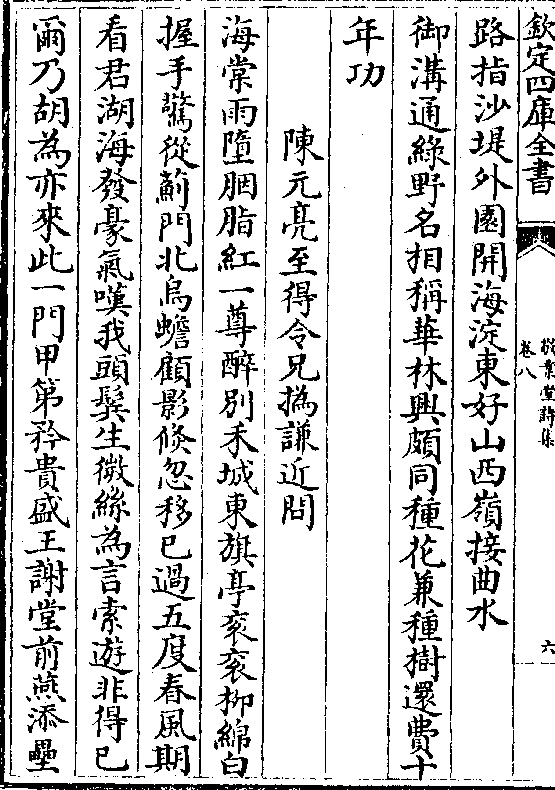 欽定四庫全書
敬業堂詩集
卷八
六
路指沙堤外園開海淀東好山西嶺接曲水
御溝通綠野名相稱華林興頗同種花兼種樹還費十
年功
陳元亮至得令兄撝謙近問
海棠雨墮胭脂紅一尊醉別禾城東旗亭衮衮柳綿白
握手驚從薊門北烏蟾顧影倏忽移已過五度春風期
看君湖海發豪氣嘆我頭髮生微絲為言索遊非得已
爾乃胡為亦來此一門甲第矜貴盛王謝堂前燕添壘